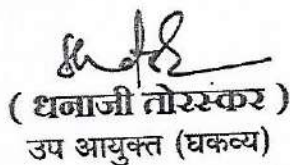 ( धनाजी तोरस्कर )
उप आयुक्त (घकव्य)